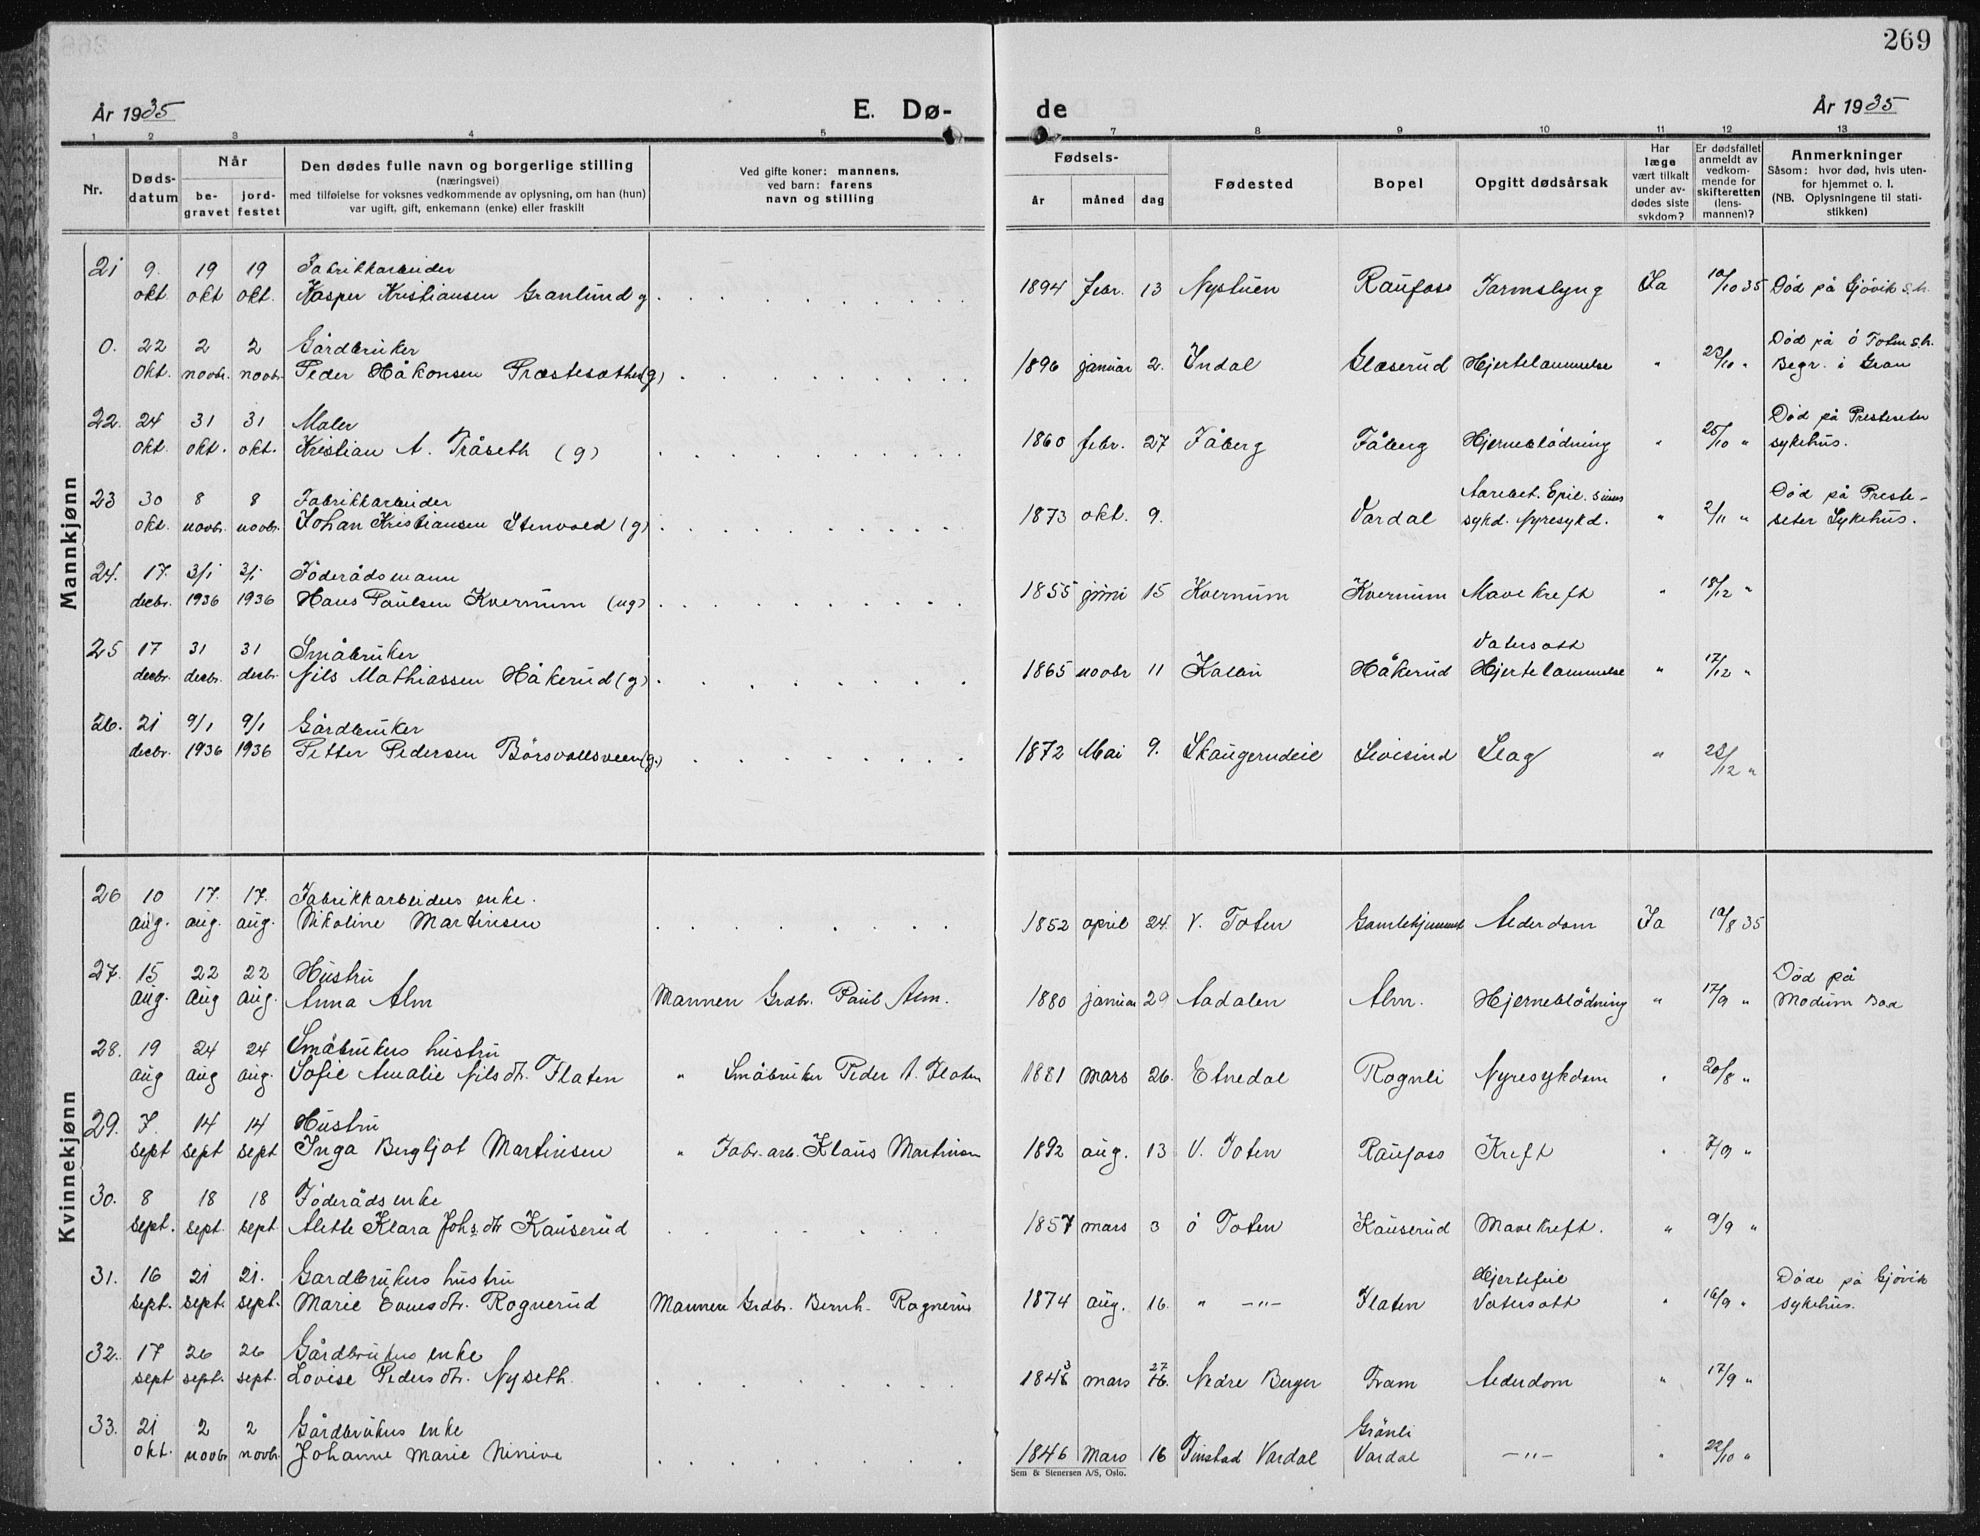 269
År 1935
E. Dø-
de
År 1935
1 2 3 4 5
7 8 9 10 11 12 13
Nr.
Døds-
datum
Når
be-
gravet
jord-
festet
Den dødes fulle navn og borgerlige stilling
(næringsvei)
med tilføielse for voksnes vedkommende av oplysning, om han (hun)
var ugift, gift, enkemann (enke) eller fraskilt
Ved gifte koner: mannens,
ved barn: farens
navn og stilling
Fødsels-
år måned dag
Fødested
Bopel
Opgitt dødsårsak
Har
læge
vært tilkalt
under av-
dødes siste
sykdom?
Er dødsfallet
anmeldt av
vedkom-
mende for
skifteretten
(lens-
mannen)?
Anmerkninger
Såsom: hvor død, hvis uten-
for hjemmet o. l.
(NB. Oplysningene til stati-
stikken)
Mannkjønn
21 9. 19 19 Fabrikkarbeider
okt. okt okt. Kasper Kristiansen Granlund g. 1894 febr. 13 Nystuen Raufoss Tarmslyng Ja 10/10 35 Død på Gjövik s.h.
0. 22 2 2 Gårdbruker Død på ö Toten s.h.
okt. novbr. novbr. Peder Håkonsen Præstesæther (g) 1896 januar 2. Indal Glæserud Hjertelammelse " 23/10 " Begr. i Gran
22. 24 31 31 Maler Død på Presteseter
okt. okt. okt. Kristian A. Tråseth (g) 1860 febr. 27 Fåberg Fåberg Hjerneblödning " 25/10 " sykehus.
23 30 8 8 Fabrikkarbeider Epil. Død på Preste-
okt. novbr. novbr. Johan Kristiansen Stenvold (g) 1873 okt. 9. Vardal sykd. Nyresykd. " 2/11 " seter Sykehus.
24. 17. 3/1 3/1 Föderådsmann
decbr. 1936 1936 Hans Paulsen Kvernum (ug) 1855 juni 15 Kvernum Kvernum Mavekreft " 18/12 "
25 17 31 31 Småbruker Vatersott
decbr. decbr. decbr. Nils Mathiassen Håkerud (g) 1865 novbr 11 Kolbu Håkerud Hjertelammelse " 17/12 "
26. 21 9/1 9/1 Gårdbruker
decbr. 1936 1936 Petter Pedersen Börsvollsveen (g.) 1872 Mai 9. Sivesind Slag " 23/12 "
Kvinnekjønn
26 10 17. 17. Fabrikkarbeiders enke.
aug. aug. aug. Nikoline Martinsen 1852 april 24. V. Toten Gamlehjemmet Alderdom Ja 10/8 35
27. 15 22 22 Hustru Død på
aug. aug aug. Anna Alm Mannen Grdbr. Paul Alm. 1880 januar 29 Aadalen Alm. Hjerneblödning " 17/9 " Modum Bad
28. 19 24 24 Småbrukers hustru
aug aug aug. Sofie Amalie Nilsdtr. Flaten " Småbruker Peder A. Flaten 1881 mars 26. Etnedal Rognli Nyresykdom " 20/8 "
29. 7. 14 14 Hustru
sept sept sept Inga Bergljot Martinsen " Fabr. arb. Klaus Martinsen 1892 aug. 13 V. Toten Raufoss Kreft " 7/9 "
30. 8 18 18 Föderådsenke
sept. sept. sept Alette Klara Johs.dtr Kauserud 1857 mars 3 ö Toten Kauserud Mavekreft. " 9/9 "
31. 16 21 21. Gardbrukers hustru Hjertefeil Döde på Gjövik
sept. sept. sept. Marie Evensdtr. Rognerud Mannen Grdbr. Bernh. Rognerud 1874 aug. 16. " -"- Flaten Vatersott " 16/9 " sykehus.
32. 17 26 26 Gårdbrukers enke 3 27
sept sept. sept. Lovise Pedersdtr. Nyseth. 1846 mars 16. Nedre Berger Fram Alderdom " 17/9 "
33. 21 2 2 Gårdbrukers enke Grönli
okt. novbr novbr. Johanne Marie Ninive 1846 Mars 16 Tinstad Vardal Vardal -"- " 22/10 "
Sem & Stenersen A/S, Oslo.